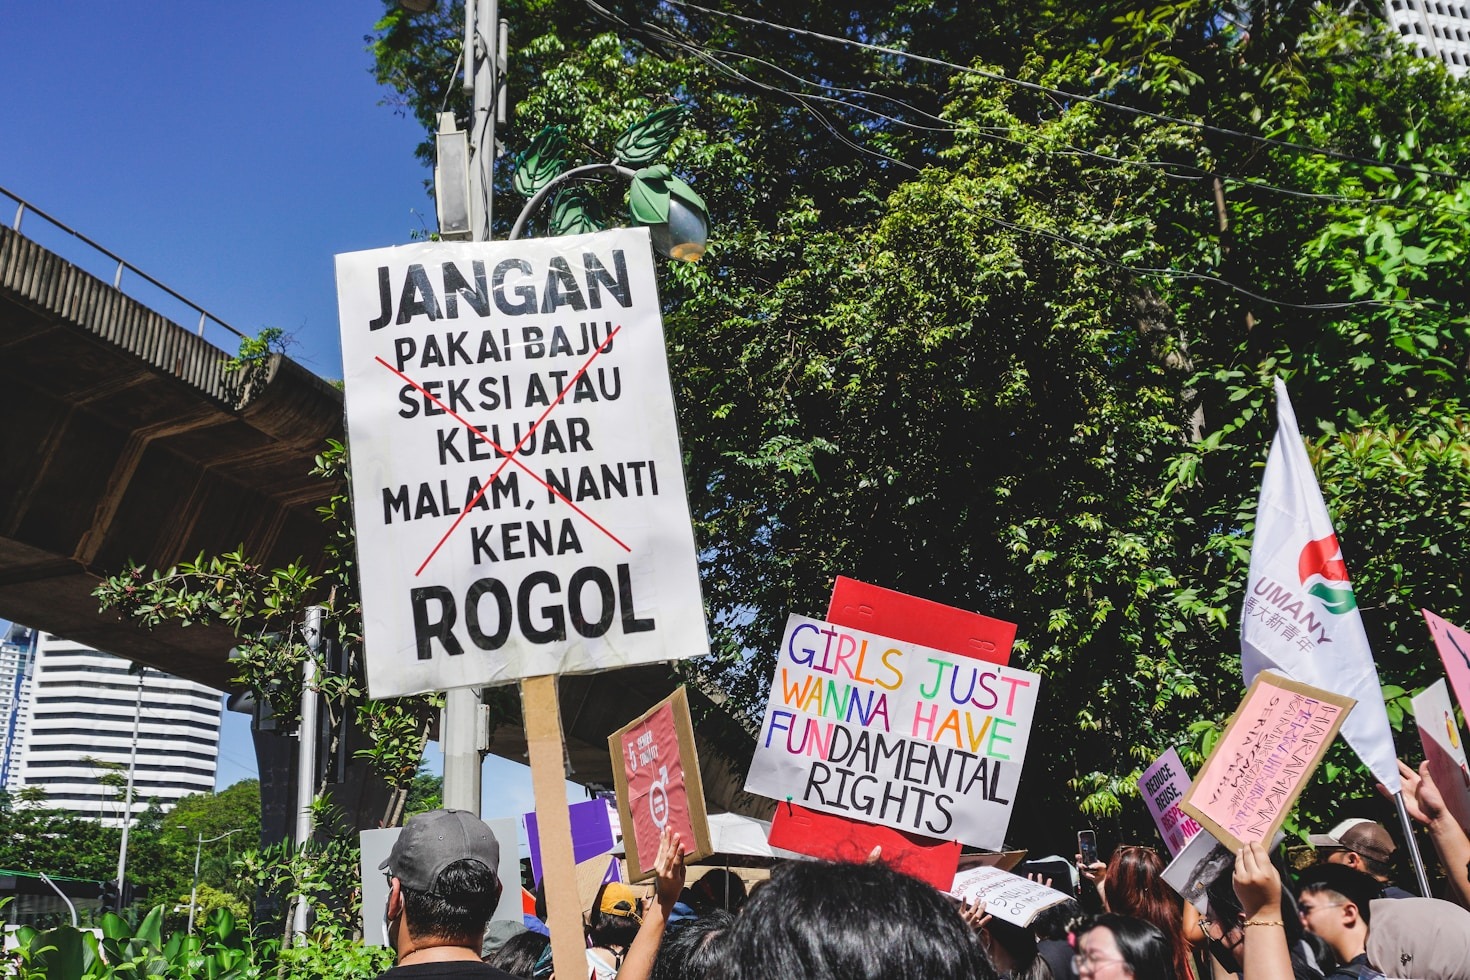 JANGAN
PAKAI BAJU
SEKSI ATAU
KELUAR
MALAM, NANTI
KENA
ROGOL
GIRLS JUST
WANNA HAVE
FUNDAMENTAL
RIGHTS
5
UMANY
馬大新青年
REDUCE,
REUSE,
HARAMKAN